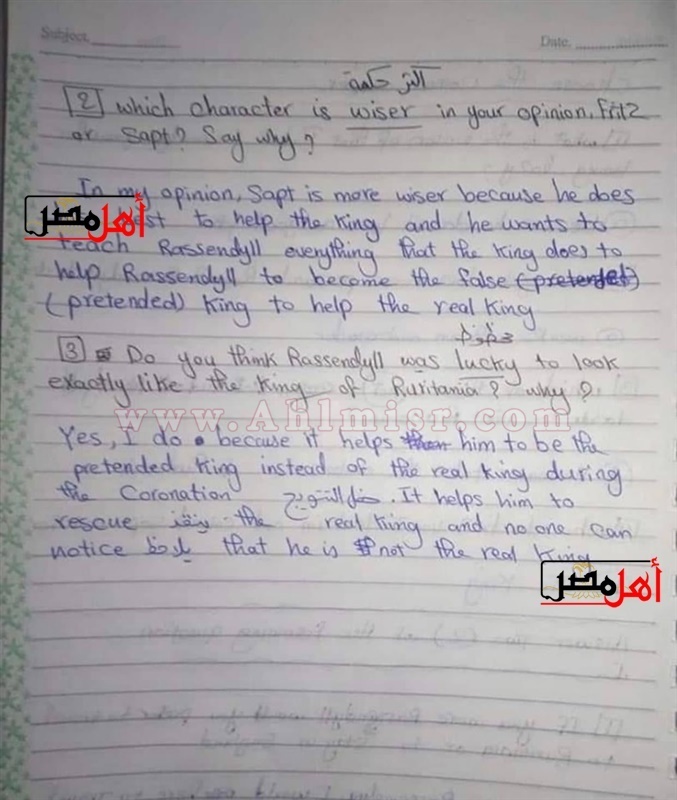 Subject
Date.
أكثر حكمة
[2] which character is wiser in your opinion, Fritz
or Sapt? Say why?
In my opinion, Sapt is more wiser because he does
best to help the King and he wants to
أهل مصر
teach Rassendyll everything that the King does to
help Rassendyll to become the false (pretended)
(pretended) King to help the real King
محظوظ
[3] Do you think Rassendyll was lucky to look
exactly like the King of Ruritania? why?
www.Ahlmisr.com
Yes, I do because it helps him to be the
pretended King instead of the real King during
the Coronation حفل التتويج. It helps him to
rescue ينقذ the real King and no one can
notice يلاحظ that he is not the real King
أهل مصر